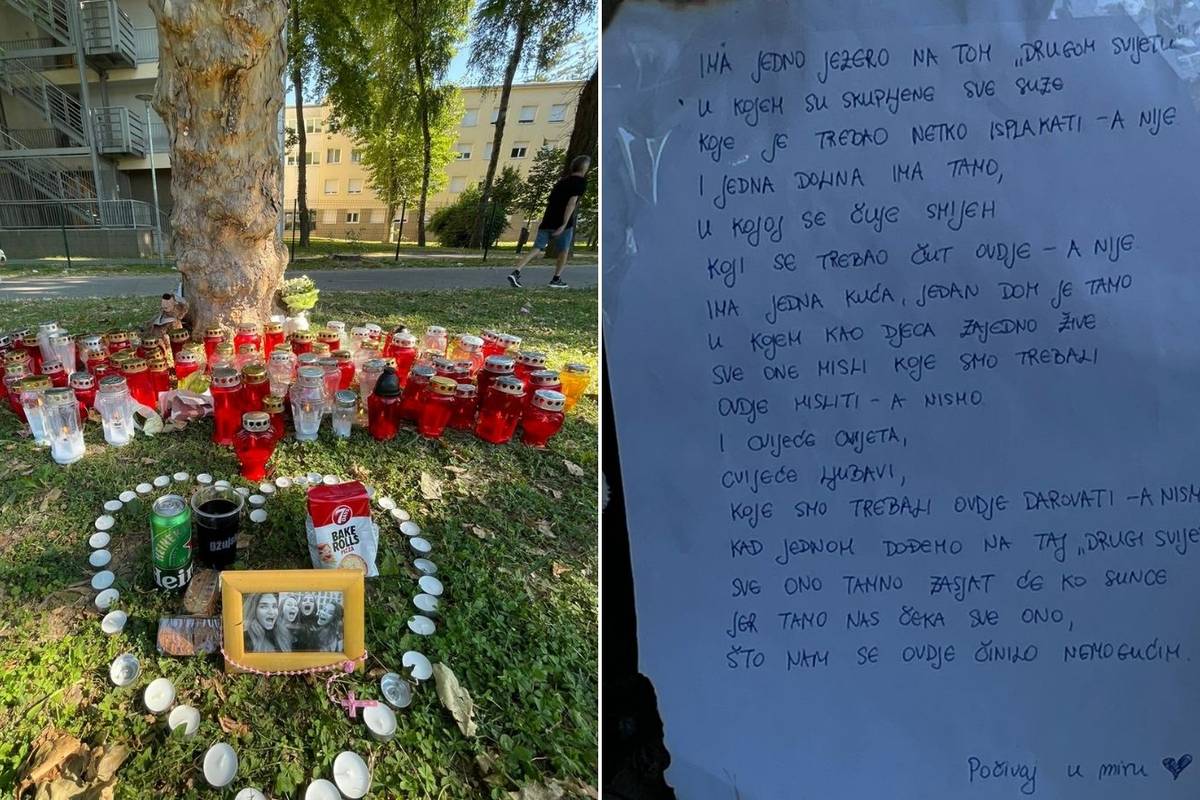 7DAYS
BAKE
ROLLS
PIZZA
ožujsko
IMA JEDNO JEZERO NA TOM „DRUGOM SVIJETU"
U KOJEM SU SKUPLJENE SVE SUZE
KOJE JE TREBAO NETKO ISPLAKATI - A NIJE
I JEDNA DOLINA IMA TAMO,
U KOJOJ SE ČUJE SMIJEH
KOJI SE TREBAO ČUT OVDJE - A NIJE
IMA JEDNA KUĆA, JEDAN DOM JE TAMO
U KOJEM KAO DJECA ZAJEDNO ŽIVE
SVE ONE MISLI KOJE SMO TREBALI
OVDJE MISLITI - A NISMO.
I CVIJEĆE CVJETA,
CVIJEĆE LJUBAVI,
KOJE SMO TREBALI OVDJE DAROVATI - A NISM
KAD JEDNOM DOĐEMO NA TAJ „DRUGI SVIJE
SVE ONO TAMNO ZASJAT ĆE KO SUNCE
JER TAMO NAS ČEKA SVE ONO,
ŠTO NAM SE OVDJE ČINILO NEMOGUĆIM.
Počivaj u miru ♥